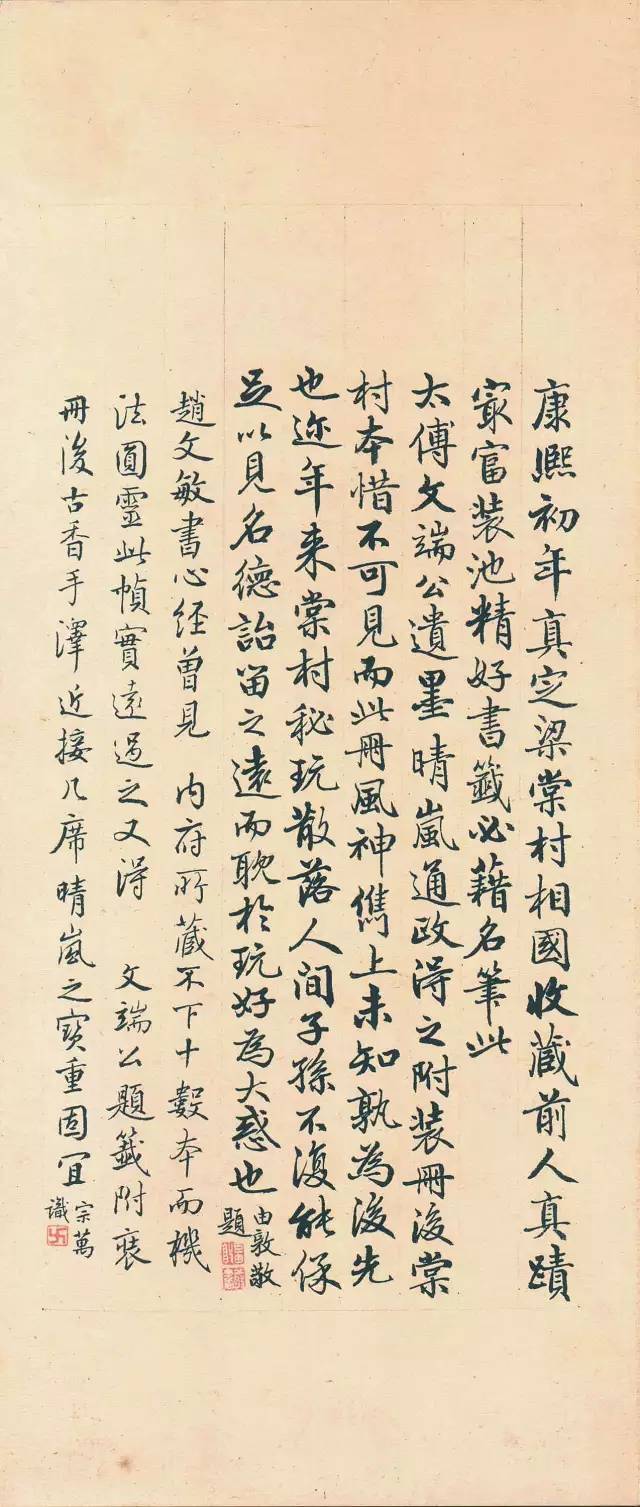 康熙初年真定梁棠村相國收藏前人真蹟
寂富裝池精好書籤必藉名筆此
太傅文端公遺墨晴嵐通政得之附裝冊後棠
村本惜不可見而此冊風神儁上未知孰為後先
也迩年来棠村秘玩散落人间子孫不復能保
足以見名德詒留之遠而耽於玩好為大惑也
由敦敬
題
趙文敏書心经曾見 内府所藏不下十數本而機
法圓靈此幀實遠過之又得 文端公題籤附裝
冊後古香手澤近接几席晴嵐之寶重固宜
宗萬
識